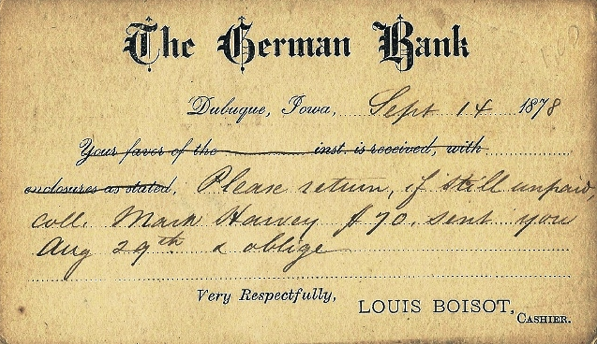 The German Bank
Dubuque, Iowa, Sept 14 1878
Your favor of the inst. is received, with
enclosures as stated. Please return, if still unpaid,
coll. Mark Harvey $70. sent you
Aug 29th & oblige
Very Respectfully,
LOUIS BOISOT,
CASHIER.